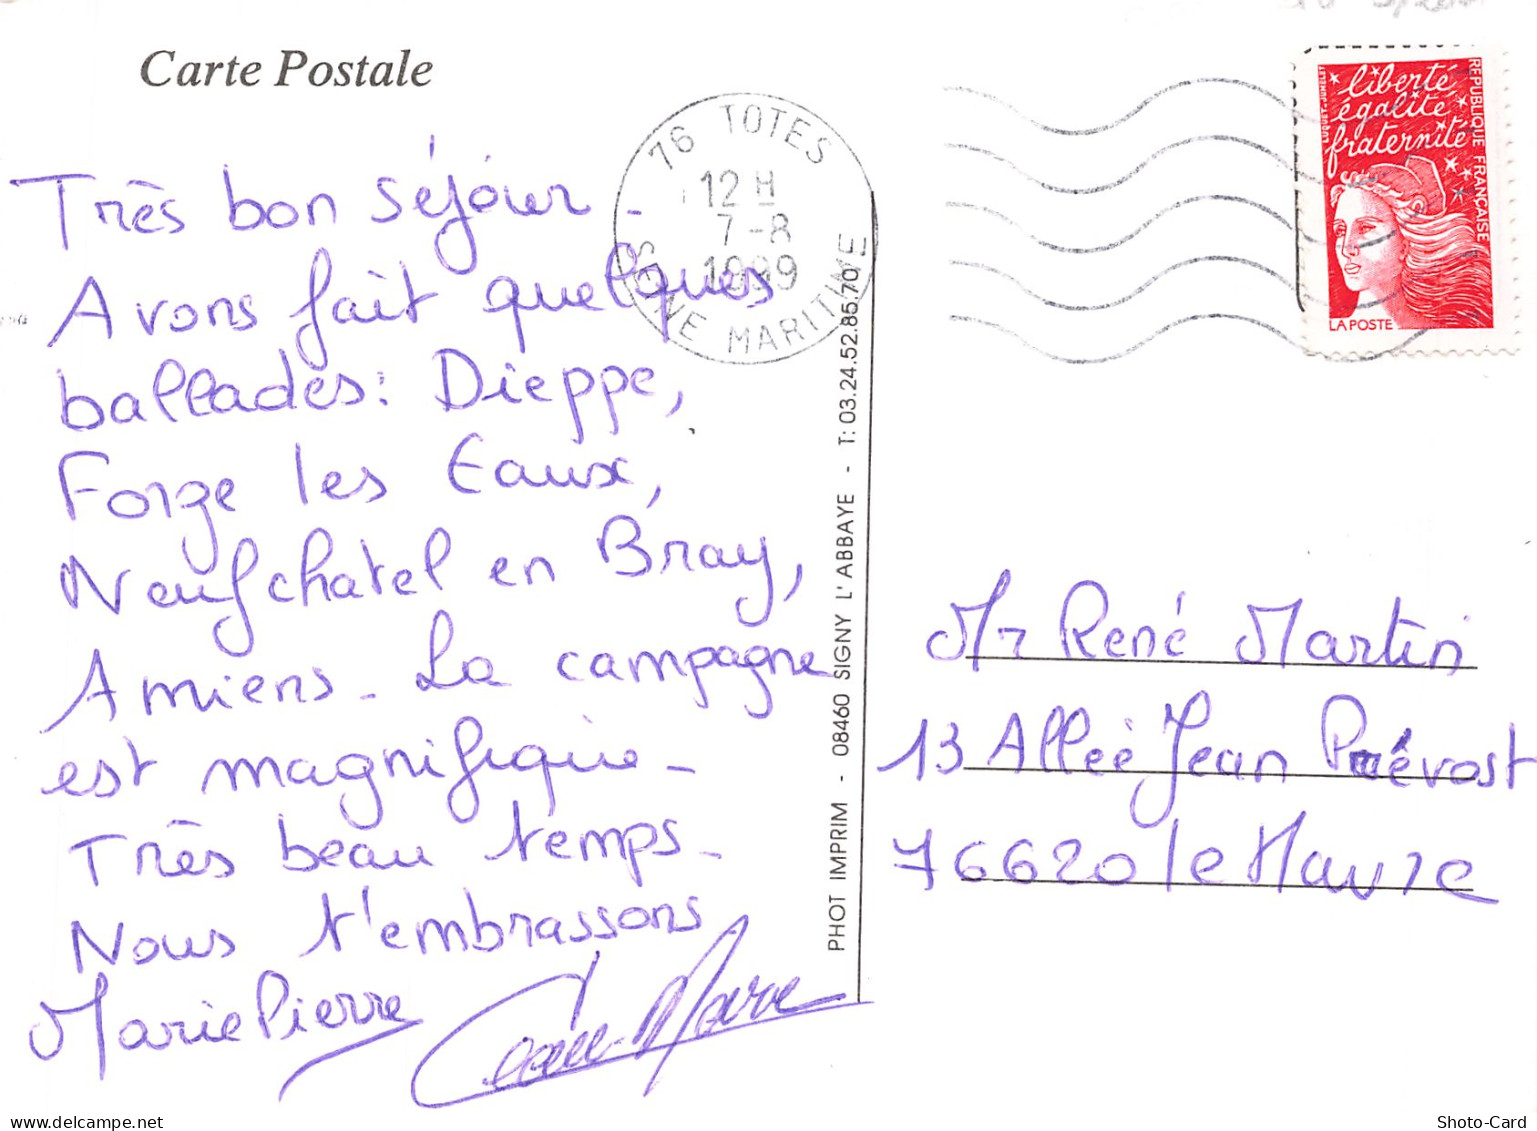 Carte Postale
Très bon séjour -
Avons fait quelques
ballades: Dieppe,
Forge les Eaux,
Neufchatel en Bray,
Amiens - La campagne
est magnifique -
Très beau temps -
Nous t'embrassons
Marie Pierre
76 TOTES
12 H
7-8
1999
SEINE MARITIME
PHOT IMPRIM - 08460 SIGNY L'ABBAYE - T: 03.24.52.85.70
liberté
égalité
fraternité
REPUBLIQUE FRANÇAISE
LA POSTE
Mr René Martin
13 Allée Jean Prévost
76620 le Havre
Shoto-Card